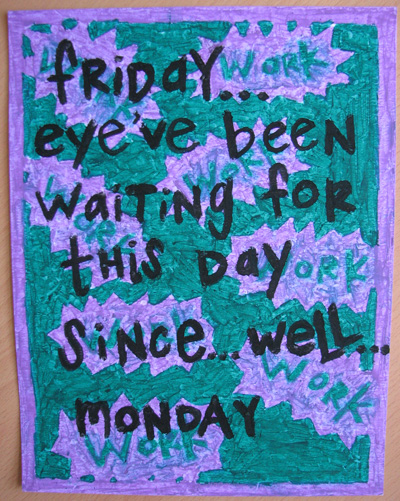 WORK
FRIDAY...
WORK
eye've been
WORK
WaiTiNg for
WORK
THIS DAY
WORK
SiNce...well...
WORK
WORK
MONDAY
WORK